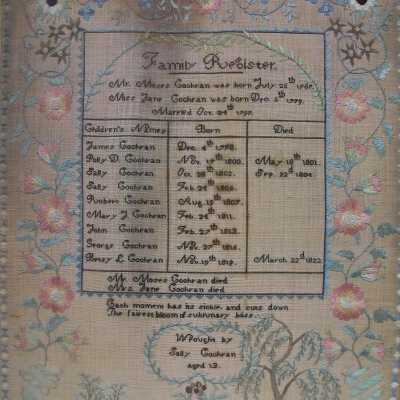 Family Register.
Mr. Moses Cochran was born July 25th
Miss Jane Cochran was born Dec. 5th
Married Oct. 24th
Children's Names Born Died
James Cochran Dec. 4th 1798.
Polly D. Cochran Nov. 19th 1800. May 18th 1801.
Sally Cochran Oct. 28th 1802. Sep. 22d 1804.
Sally Cochran Feb. 24th
Robert Cochran Aug. 19th 1807.
Mary J. Cochran Feb. 24th 1811.
John Cochran Feb. 27th 1813.
George Cochran Nov. 27th 1814.
Betsy L. Cochran Nov. 19th 1819. March 22d 1822.
Mr. Moses Cochran died
Mrs. Jane Cochran died
Each moment has its sickle and cuts down
The fairest bloom of sublunary bliss.
Wrought by
Sally Cochran
aged 13.